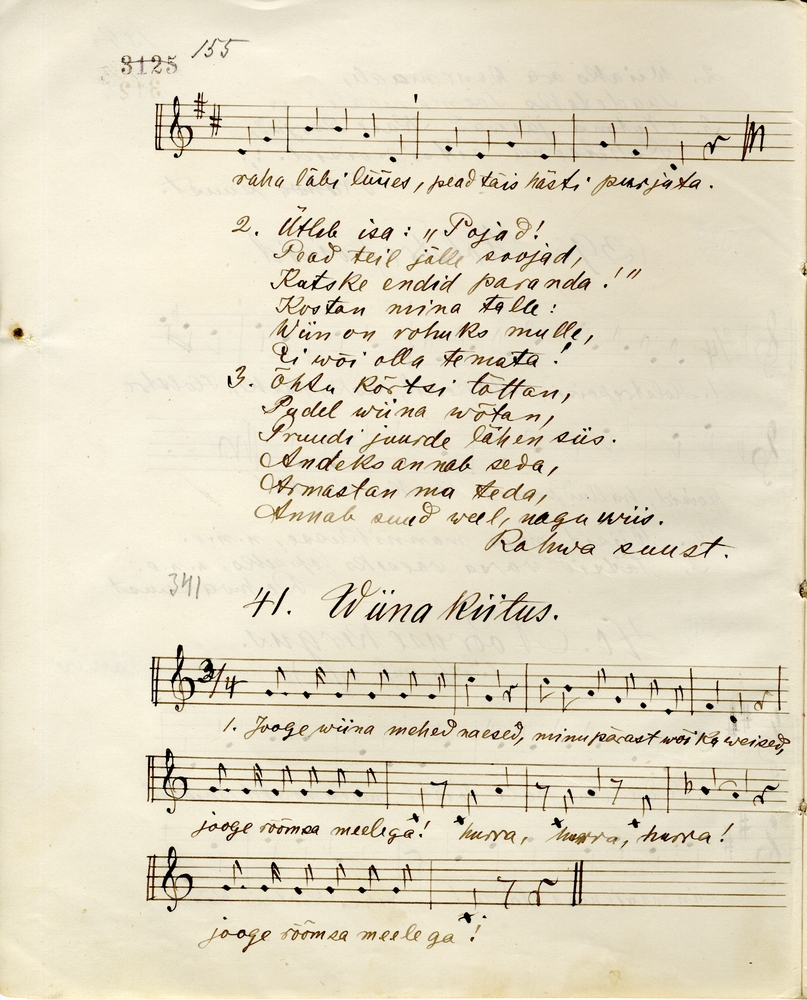 3125 155
raha läbi lüües, pead täis hästi purjuta.
2. Ütleb isa: „Pojad!
Pead teil jälle soojad,
Katske endid paranda!"
Kostan mina talle:
Wiin on rohuks mulle,
Ei wõi olla temata!
3. Õhtu kõrtsi tõttan,
Pudel wiina wõtan,
Pruudi juurde lähen siis.
Andeks annab seda,
Armastan ma teda,
Annab suud weel, nagu wiis.
Rahwa suust.
341
41. Wiina kiitus.
3/4
1. Jooge wiina mehed naesed, minupärast wõi ka weised,
jooge rõõmsa meelega! hurra, hurra, hurra!
jooge rõõmsa meelega!